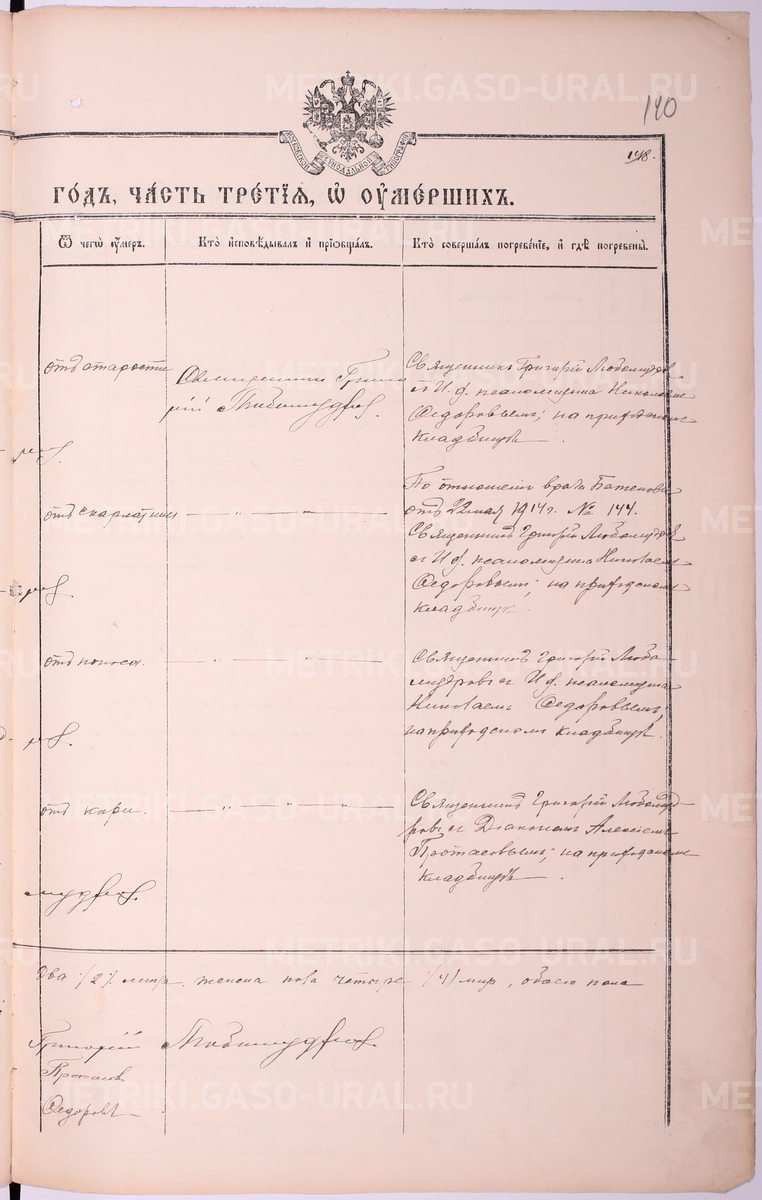 140
148.
МОСКОВСКОЙ СУНОДАЛЬНОЙ ТИПОГРАФІИ
ГОДЪ, ЧАСТЬ ТРЕТІѦ, Ѡ ОУМЕРШИХЪ.
Ѿ чегѡ оумеръ.
Кто исповѣдывалъ и пріобщалъ.
Кто совершалъ погребеніе, и гдѣ погребены.
отъ старости
Священникъ Григо
рій Любомудровъ.
Священникъ Григорій Любомудровъ
съ И. д. псаломщика Николаемъ
Ѳедоровымъ; на приходскомъ
кладбищѣ.
отъ скарлатины
— " — " —
По отношенію врача
отъ 22 мая 1914 г. № 144.
Священникъ Григорій Любомудровъ
съ И. д. псаломщика Николаемъ
Ѳедоровымъ; на приходскомъ
кладбищѣ.
отъ поноса.
— " — " —
Священникъ Григорій Любо-
мудровъ съ И. д. псаломщика
Николаемъ Ѳедоровымъ,
на приходскомъ кладбищѣ.
отъ кори.
— " — " — " — " —
Священникъ Григорій Любомуд-
ровъ съ Діакономъ Алексѣемъ
Протасовымъ; на приходскомъ
кладбищѣ.
мудровъ.
два /2/ женска пола четыре /4/ обоего пола
Григорій Любомудровъ.
Протасов
Ѳедоровъ
METRIKI.GASO-URAL.RU